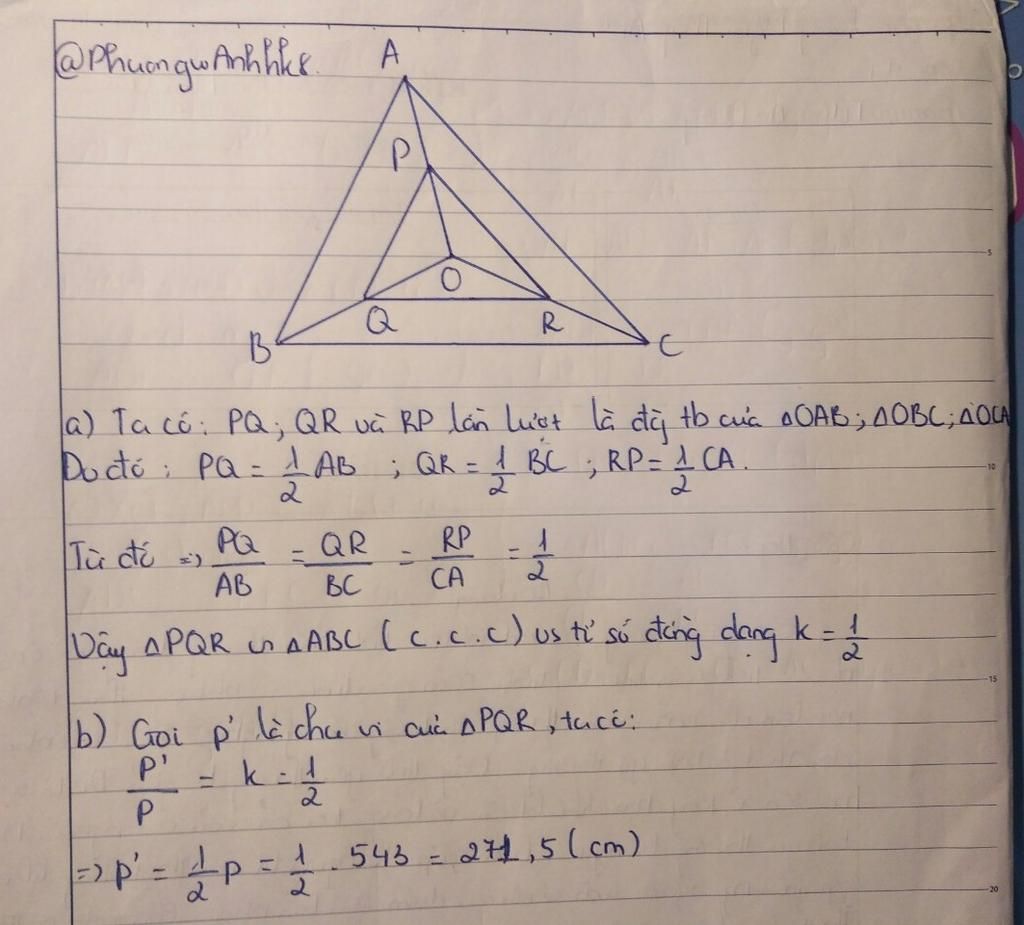 @PhuongwAnhhk8.
A
P
O
Q
R
B
C
a) Ta có: PQ; QR và RP lần lượt là đg tb của △OAB; △OBC; △OCA
Do đó: PQ = 1/2 AB ; QR = 1/2 BC ; RP = 1/2 CA.
Từ đó => PQ/AB = QR/BC = RP/CA = 1/2
Vậy △PQR ∽ △ABC (c.c.c) vs tỉ số đồng dạng k = 1/2
b) Gọi p' là chu vi của △PQR, ta có:
P'/P = k = 1/2
=> p' = 1/2 p = 1/2 . 543 = 271,5 (cm)
5
10
15
20